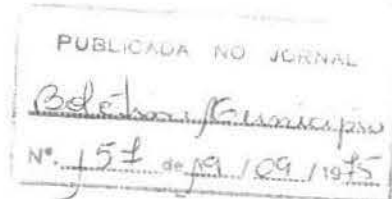 PUBLICADA NO JORNAL
Boletim Município
Nº. 157 de 19 / 09 / 1975